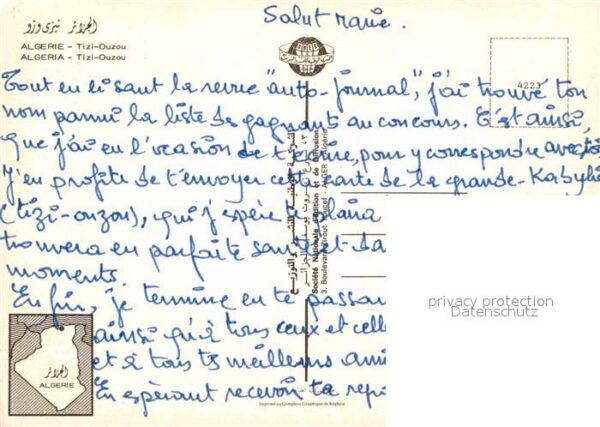 Salut Marie.
الجزائر تيزي وزو
ALGERIE – Tizi-Ouzou
ALGERIA – Tizi-Ouzou
4223
Tout en lisant la revue "auto-journal", j'ai trouvé ton
nom parmi la liste des gagnants au concours. C'est ainsi,
que j'ai eu l'occasion de t'écrire, pour y correspondre avec toi
J'en profite de t'envoyer cette carte de la grande-Kabyli
(tizi-ouzou), qui j'espère
trouvera en parfaite santé et
moments.
Enfin, je termine en te passan
ainsi qu'à tous ceux et celle
et à tous tes meilleurs ami
En espérant recevoir ta rép
الشركة الوطنية للنشر والتوزيع
Société Nationale d'Edition et de Diffusion
3, Boulevard Zirout Youcef - ALGER
privacy protection
Datenschutz
الجزائر
ALGERIE
Imprimé au Complexe Graphique de Réghaia